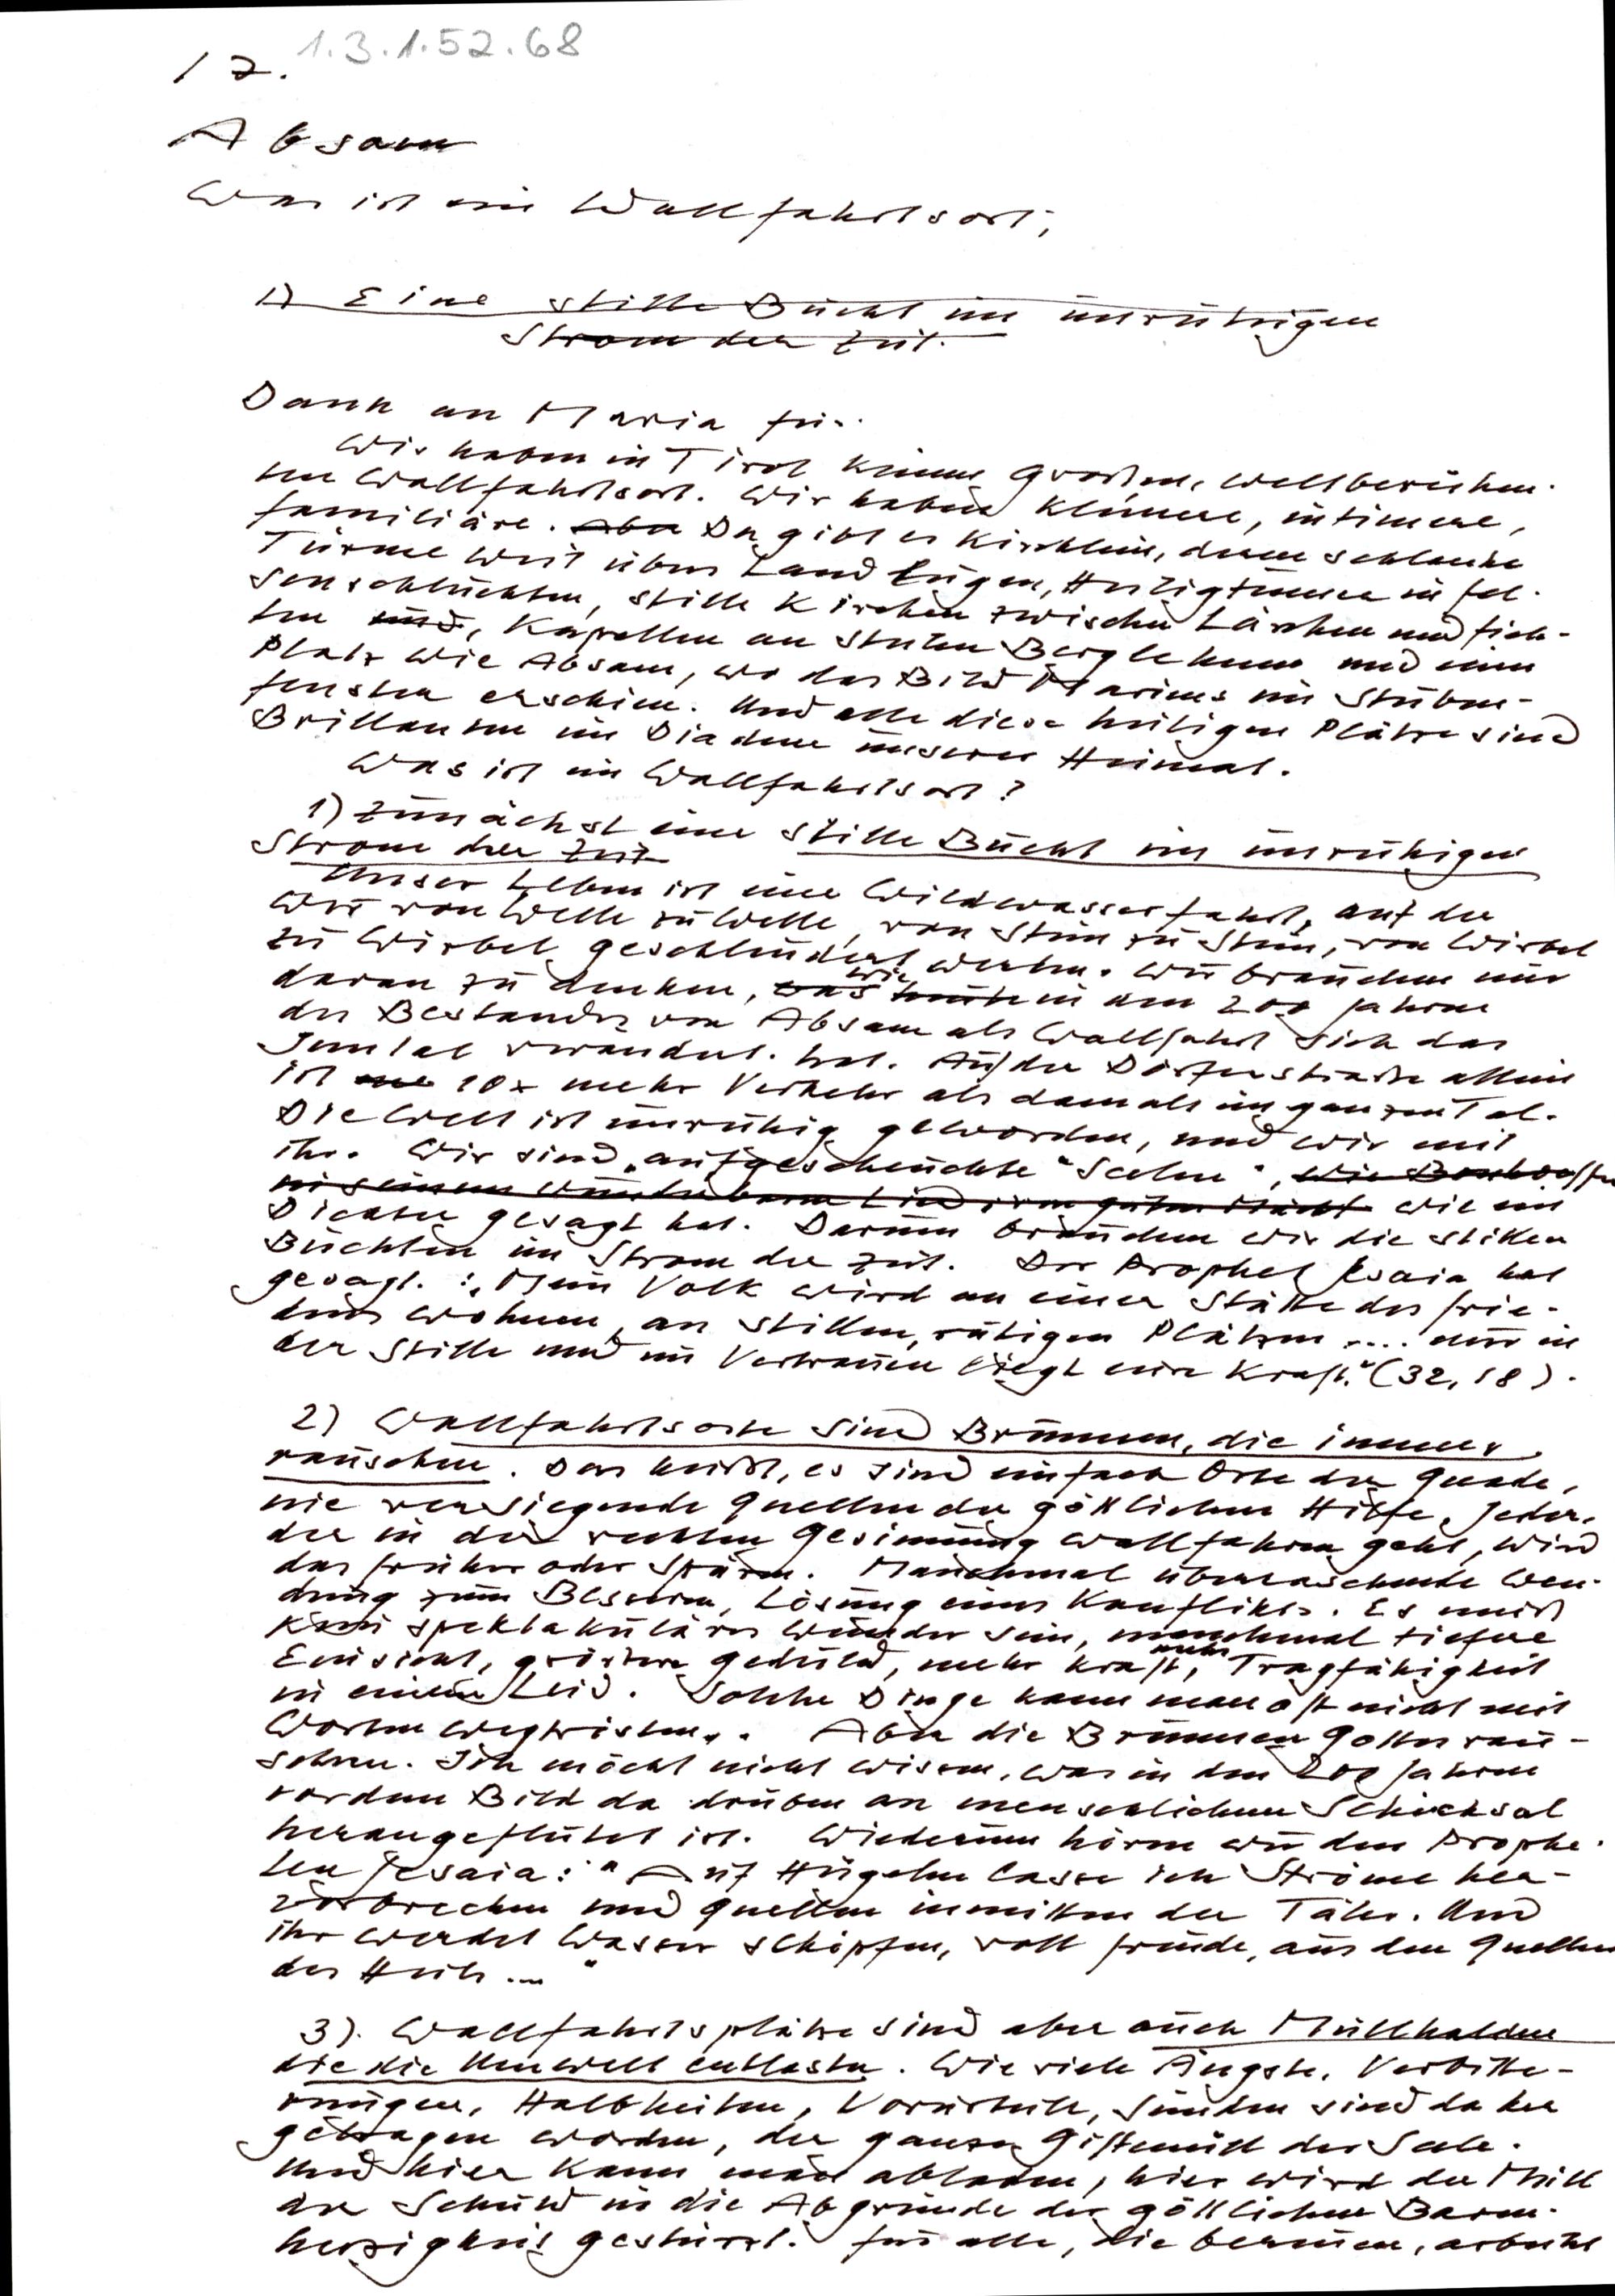 1.3.1.52.68
17.
Absam
Was ist ein Wallfahrtsort;
1) Eine stille Bucht im unruhigen
Strom der Zeit.
Dank an Maria für.
Wir haben in Tirol keinen großen, weltberühm-
ten Wallfahrtsort. Wir haben kleinere, intimere,
familiäre. Aber Da gibt es Kirchlein, deren schlanke
Türme weit übers Land lugen, Heiligtümer in Fel-
senschluchten, stille Kirchen zwischen Lärchen und Fich-
ten und, Kapellen an steilen Berglehnen und einen
Platz wie Absam, wo das Bild Mariens im Stuben-
fenster erschien. Und alle diese heiligen Plätze sind
Brillanten im Diadem unserer Heimat.
Was ist ein Wallfahrtsort?
1) Zunächst eine stille Bucht im unruhigen
Strom der Zeit
Unser Leben ist eine Wildwasserfahrt, auf der
wir von Welle zu Welle, von Stein zu Stein, von Wirbel
zu Wirbel geschleudert werden. Wir brauchen nur
daran zu denken, was wie heute in den 200 Jahren
des Bestandes von Absam als Wallfahrt sich das
Inntal verändert hat. Auf der Dörferstraße allein
ist 10x mehr Verkehr als damals im ganzen Tal.
Die Welt ist unruhig geworden, und wir mit
ihr. Wir sind „aufgescheuchte" Seelen", wie Bonhoeffer
in seinem wunderbaren Lied von guten Mächt wie ein
Dichter gesagt hat. Darum brauchen wir die stillen
Buchten im Strom der Zeit. Der Prophet Jesaia hat
gesagt.: „Mein Volk wird an einer Stätte des Frie-
dens wohnen, an stillen, ruhigen Plätzen .... nur in
der Stille und im Vertrauen liegt eure Kraft." (32,18).
2) Wallfahrtsorte sind Brunnen, die immer
rauschen. Das heißt, es sind einfach Orte der Gnade,
nie versiegende Quellen der göttlichen Hilfe. Jeder,
der in der rechten Gesinnung wallfahren geht, wird
das früher oder später. Manchmal überraschende Wen-
dung zum Bessern, Lösung eines Konfliktes. Es muß
kein spektakuläres Wunder sein, manchmal tiefere
Einsicht, größere Geduld, mehr Kraft, mehr Tragfähigkeit
in einem Leid. Solche Dinge kann man oft nicht mit
Worten. Aber die Brunnen Gottes rau-
schen. Ich möcht nicht wissen, was in den 200 Jahren
vor dem Bild da drüben an menschlichem Schicksal
herangeflutet ist. Wiederum hören wir den Prophe-
ten Jesaia: "Auf Hügeln lasse ich Ströme her-
vorbrechen und Quellen inmitten der Täler. Und
ihr werdet Wasser schöpfen, voll Freude, aus den Quellen
des Heils ...."
3). Wallfahrtsplätze sind aber auch Müllhalden
die die Umwelt entlasten. Wie viele Ängste, Verbitte-
rungen, Halbheiten, Vorurteile, Sünden sind da her
getragen worden, der ganze Giftmüll der Seele.
Und hier kann man abladen, hier wird der Müll
der Schuld in die Abgründe der göttlichen Barm-
herzigkeit gestürzt. Für alle, die bereuen, arbeitet